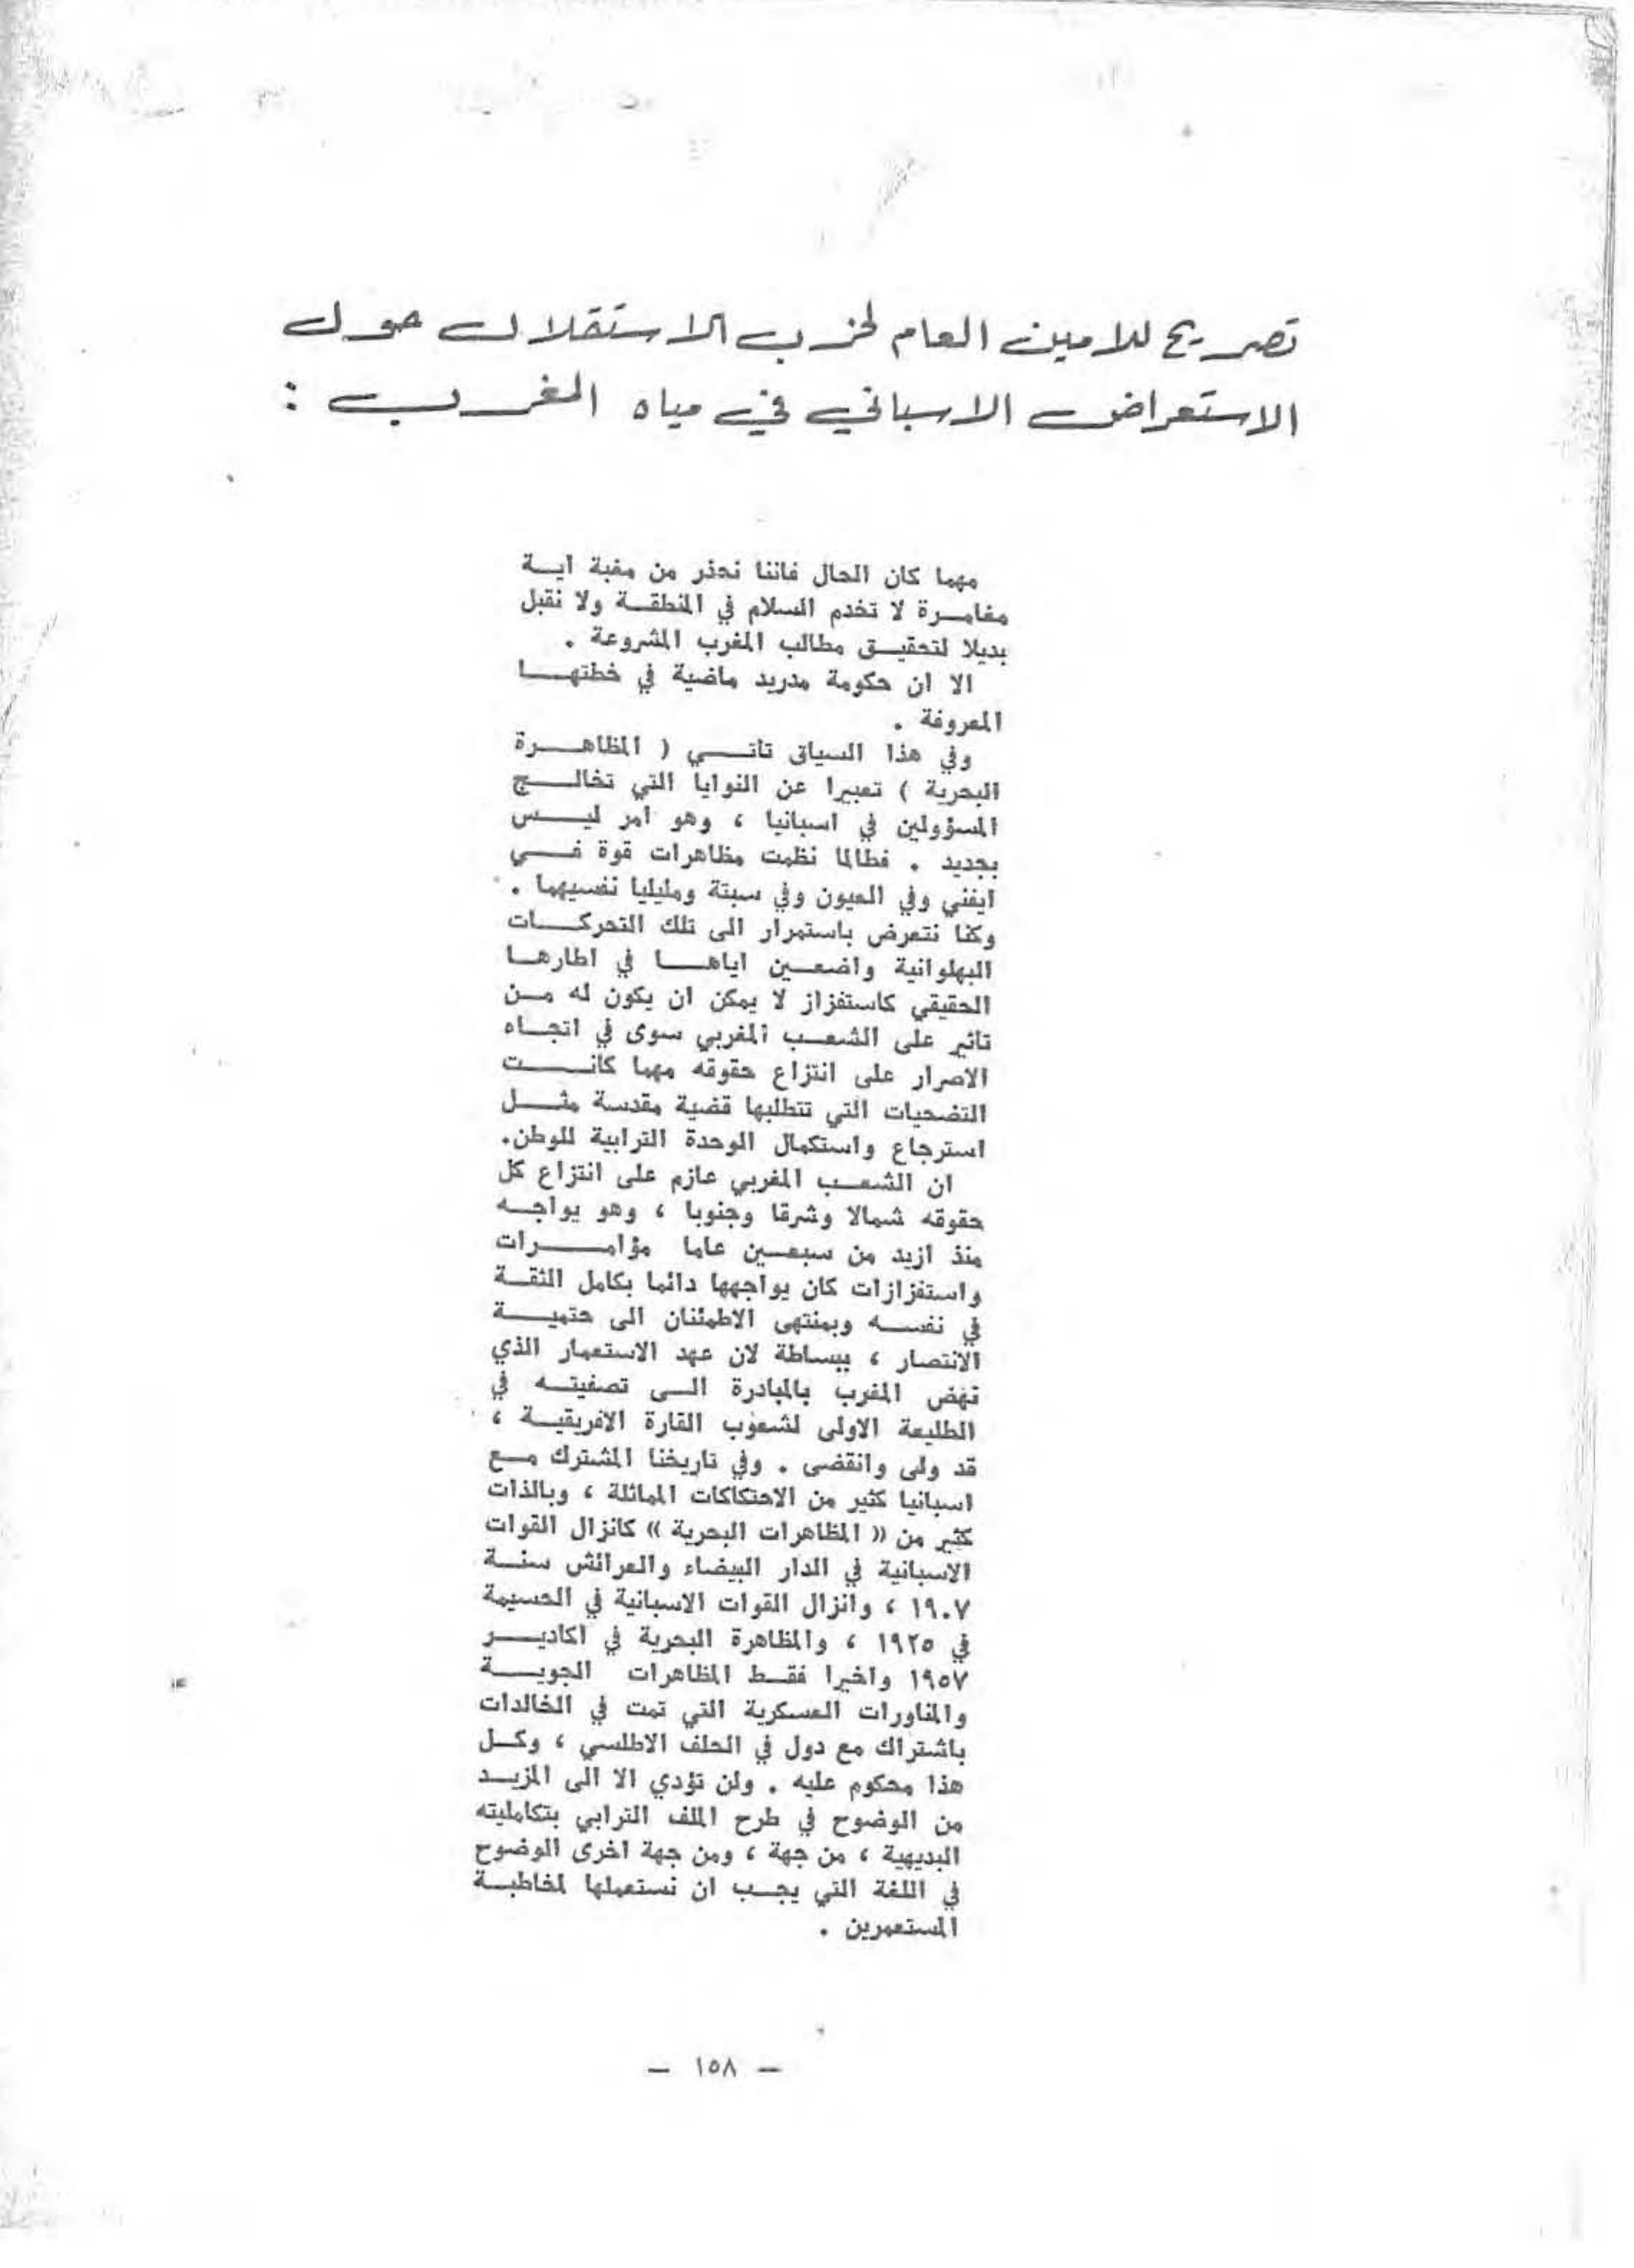 تصريح للامين العام لحزب الاستقلال حول
الاستعراض الاسباني في مياه المغرب :
مهما كان الحال فاننا نحذر من مغبة اية
مغامرة لا تخدم السلام في المنطقة ولا نقبل
بديلا لتحقيق مطالب المغرب المشروعة .
الا ان حكومة مدريد ماضية في خطتها
المعروفة .
وفي هذا السياق تاتي ( المظاهرة
البحرية ) تعبيرا عن النوايا التي تخالج
المسؤولين في اسبانيا ، وهو امر ليس
بجديد . فطالما نظمت مظاهرات قوة في
ايفني وفي العيون وفي سبتة ومليليا نفسيهما .
وكنا نتعرض باستمرار الى تلك التحركات
البهلوانية واضعين اياها في اطارها
الحقيقي كاستفزاز لا يمكن ان يكون له من
تاثير على الشعب المغربي سوى في اتجاه
الاصرار على انتزاع حقوقه مهما كانت
التضحيات التي تتطلبها قضية مقدسة مثل
استرجاع واستكمال الوحدة الترابية للوطن.
ان الشعب المغربي عازم على انتزاع كل
حقوقه شمالا وشرقا وجنوبا ، وهو يواجه
منذ ازيد من سبعين عاما مؤامرات
واستفزازات كان يواجهها دائما بكامل الثقة
في نفسه وبمنتهى الاطمئنان الى حتمية
الانتصار ، ببساطة لان عهد الاستعمار الذي
نهض المغرب بالمبادرة الى تصفيته في
الطليعة الاولى لشعوب القارة الافريقية ،
قد ولى وانقضى . وفي تاريخنا المشترك مع
اسبانيا كثير من الاحتكاكات المماثلة ، وبالذات
كثير من « المظاهرات البحرية » كانزال القوات
الاسبانية في الدار البيضاء والعرائش سنة
١٩٠٧ ، وانزال القوات الاسبانية في الحسيمة
في ١٩٢٥ ، والمظاهرة البحرية في اكادير
١٩٥٧ واخيرا فقط المظاهرات الجوية
والمناورات العسكرية التي تمت في الخالدات
باشتراك مع دول في الحلف الاطلسي ، وكل
هذا محكوم عليه . ولن تؤدي الا الى المزيد
من الوضوح في طرح الملف الترابي بتكامليته
البديهية ، من جهة ، ومن جهة اخرى الوضوح
في اللغة التي يجب ان نستعملها لمخاطبة
المستعمرين .
— ١٥٨ —